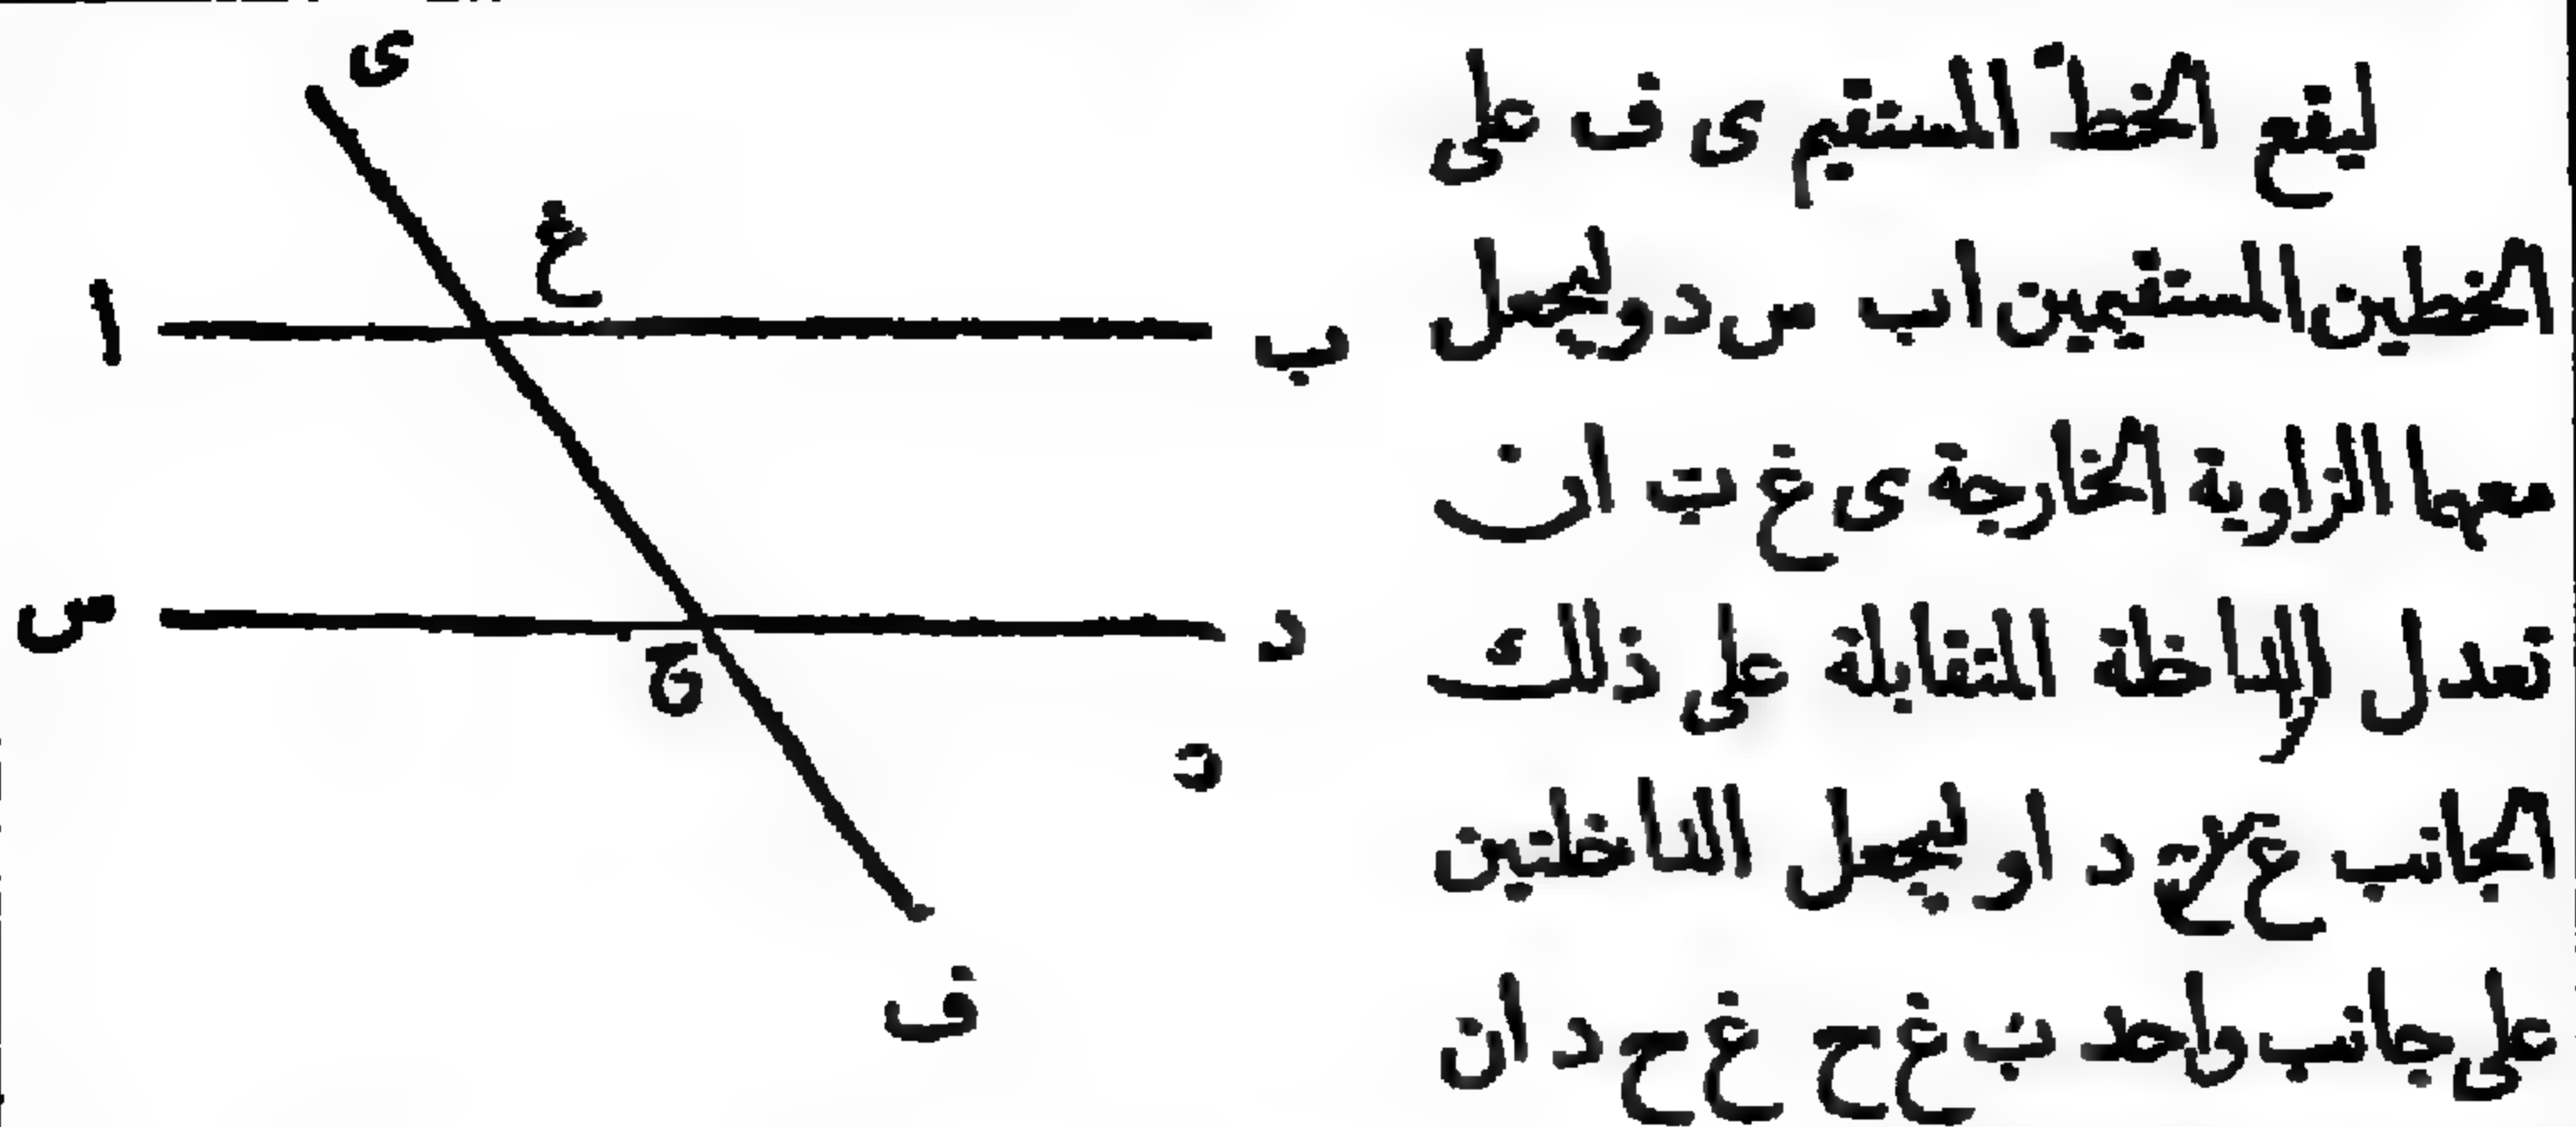 ى
غ
ا
ب
س
د
ح
ف
ليقع الخط المستقيم ى ف على
الخطين المستقيمين اب س د وليجعل
معهما الزاوية الخارجة ى غ ب ان
تعدل الداخلة المتقابلة على ذلك
الجانب غ ح د او ليجعل الداخلتين
على جانب واحد ب غ ح غ ح د ان